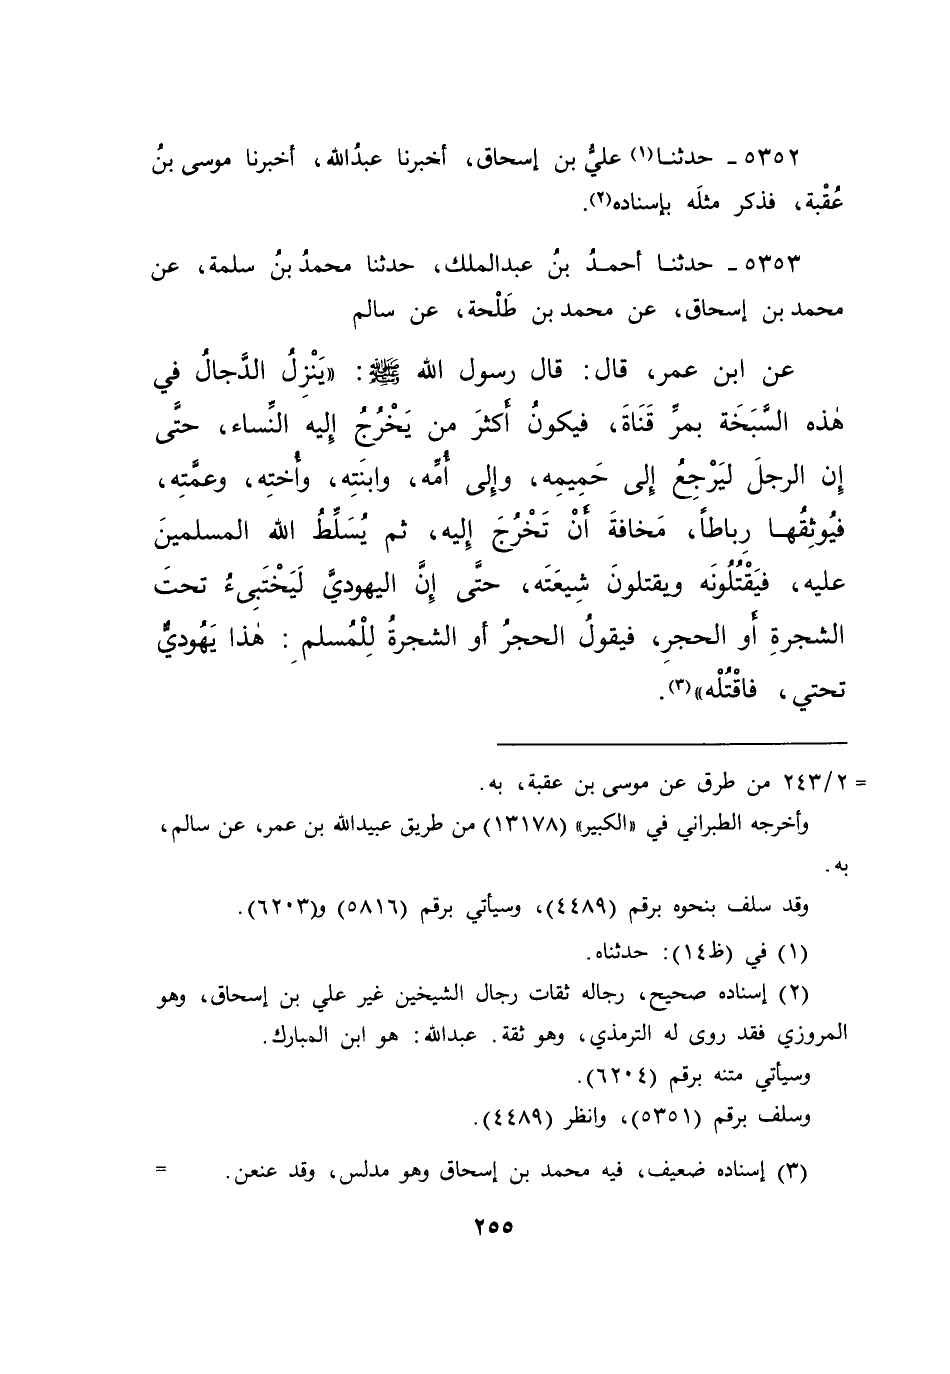 ٥٣٥٢ ـ حدثنـا(١) عليُّ بن إسحاق، أخبرنا عبدُالله، أخبرنا موسى بنُ
عُقْبة، فذكر مثلَه بإسناده(٢).
٥٣٥٣ ـ حدثنـا أحمـدُ بنُ عبدالملك، حدثنا محمدُ بنُ سلمة، عن
محمد بن إسحاق، عن محمد بن طَلْحة، عن سالم
عن ابن عمر، قال: قال رسول الله ﷺ: «يَنْزِلُ الدَّجالُ في
هٰذه السَّبَخَة بمرِّ قَنَاةَ، فيكونُ أَكثرَ من يَخْرُجُ إِليه النِّساء، حتَّى
إِن الرجلَ ليَرْجِعُ إِلى حَمِيمِه، وإِلى أُمِّه، وابنَتِه، وأُختِه، وعمَّتِه،
فيُوثِقُهـا رِباطاً، مَخافةَ أَنْ تَخْرُجَ إِليه، ثم يُسَلِّطُ الله المسلمينَ
عليه، فيَقْتُلُونَه ويقتلونَ شِيعَتَه، حتَّى إِنَّ اليهوديَّ لَيَخْتَبِىءُ تحتَ
الشجرةِ أَو الحجرِ، فيقولُ الحجرُ أَو الشجرةُ لِلْمُسلمِ: هٰذا يَهُوديٌّ
تحتي، فاقْتُلْه»(٣).
= ٢٤٣/٢ من طرق عن موسى بن عقبة، به.
وأخرجه الطبراني في «الكبير» (١٣١٧٨) من طريق عبيدالله بن عمر، عن سالم،
به.
وقد سلف بنحوه برقم (٤٤٨٩)، وسيأتي برقم (٥٨١٦) و(٦٢٠٣).
(١) في (ظ١٤): حدثناه.
(٢) إسناده صحيح، رجاله ثقات رجال الشيخين غير علي بن إسحاق، وهو
المروزي فقد روى له الترمذي، وهو ثقة. عبدالله: هو ابن المبارك.
وسيأتي متنه برقم (٦٢٠٤).
وسلف برقم (٥٣٥١)، وانظر (٤٤٨٩).
(٣) إسناده ضعيف، فيه محمد بن إسحاق وهو مدلس، وقد عنعن. =
٢٥٥